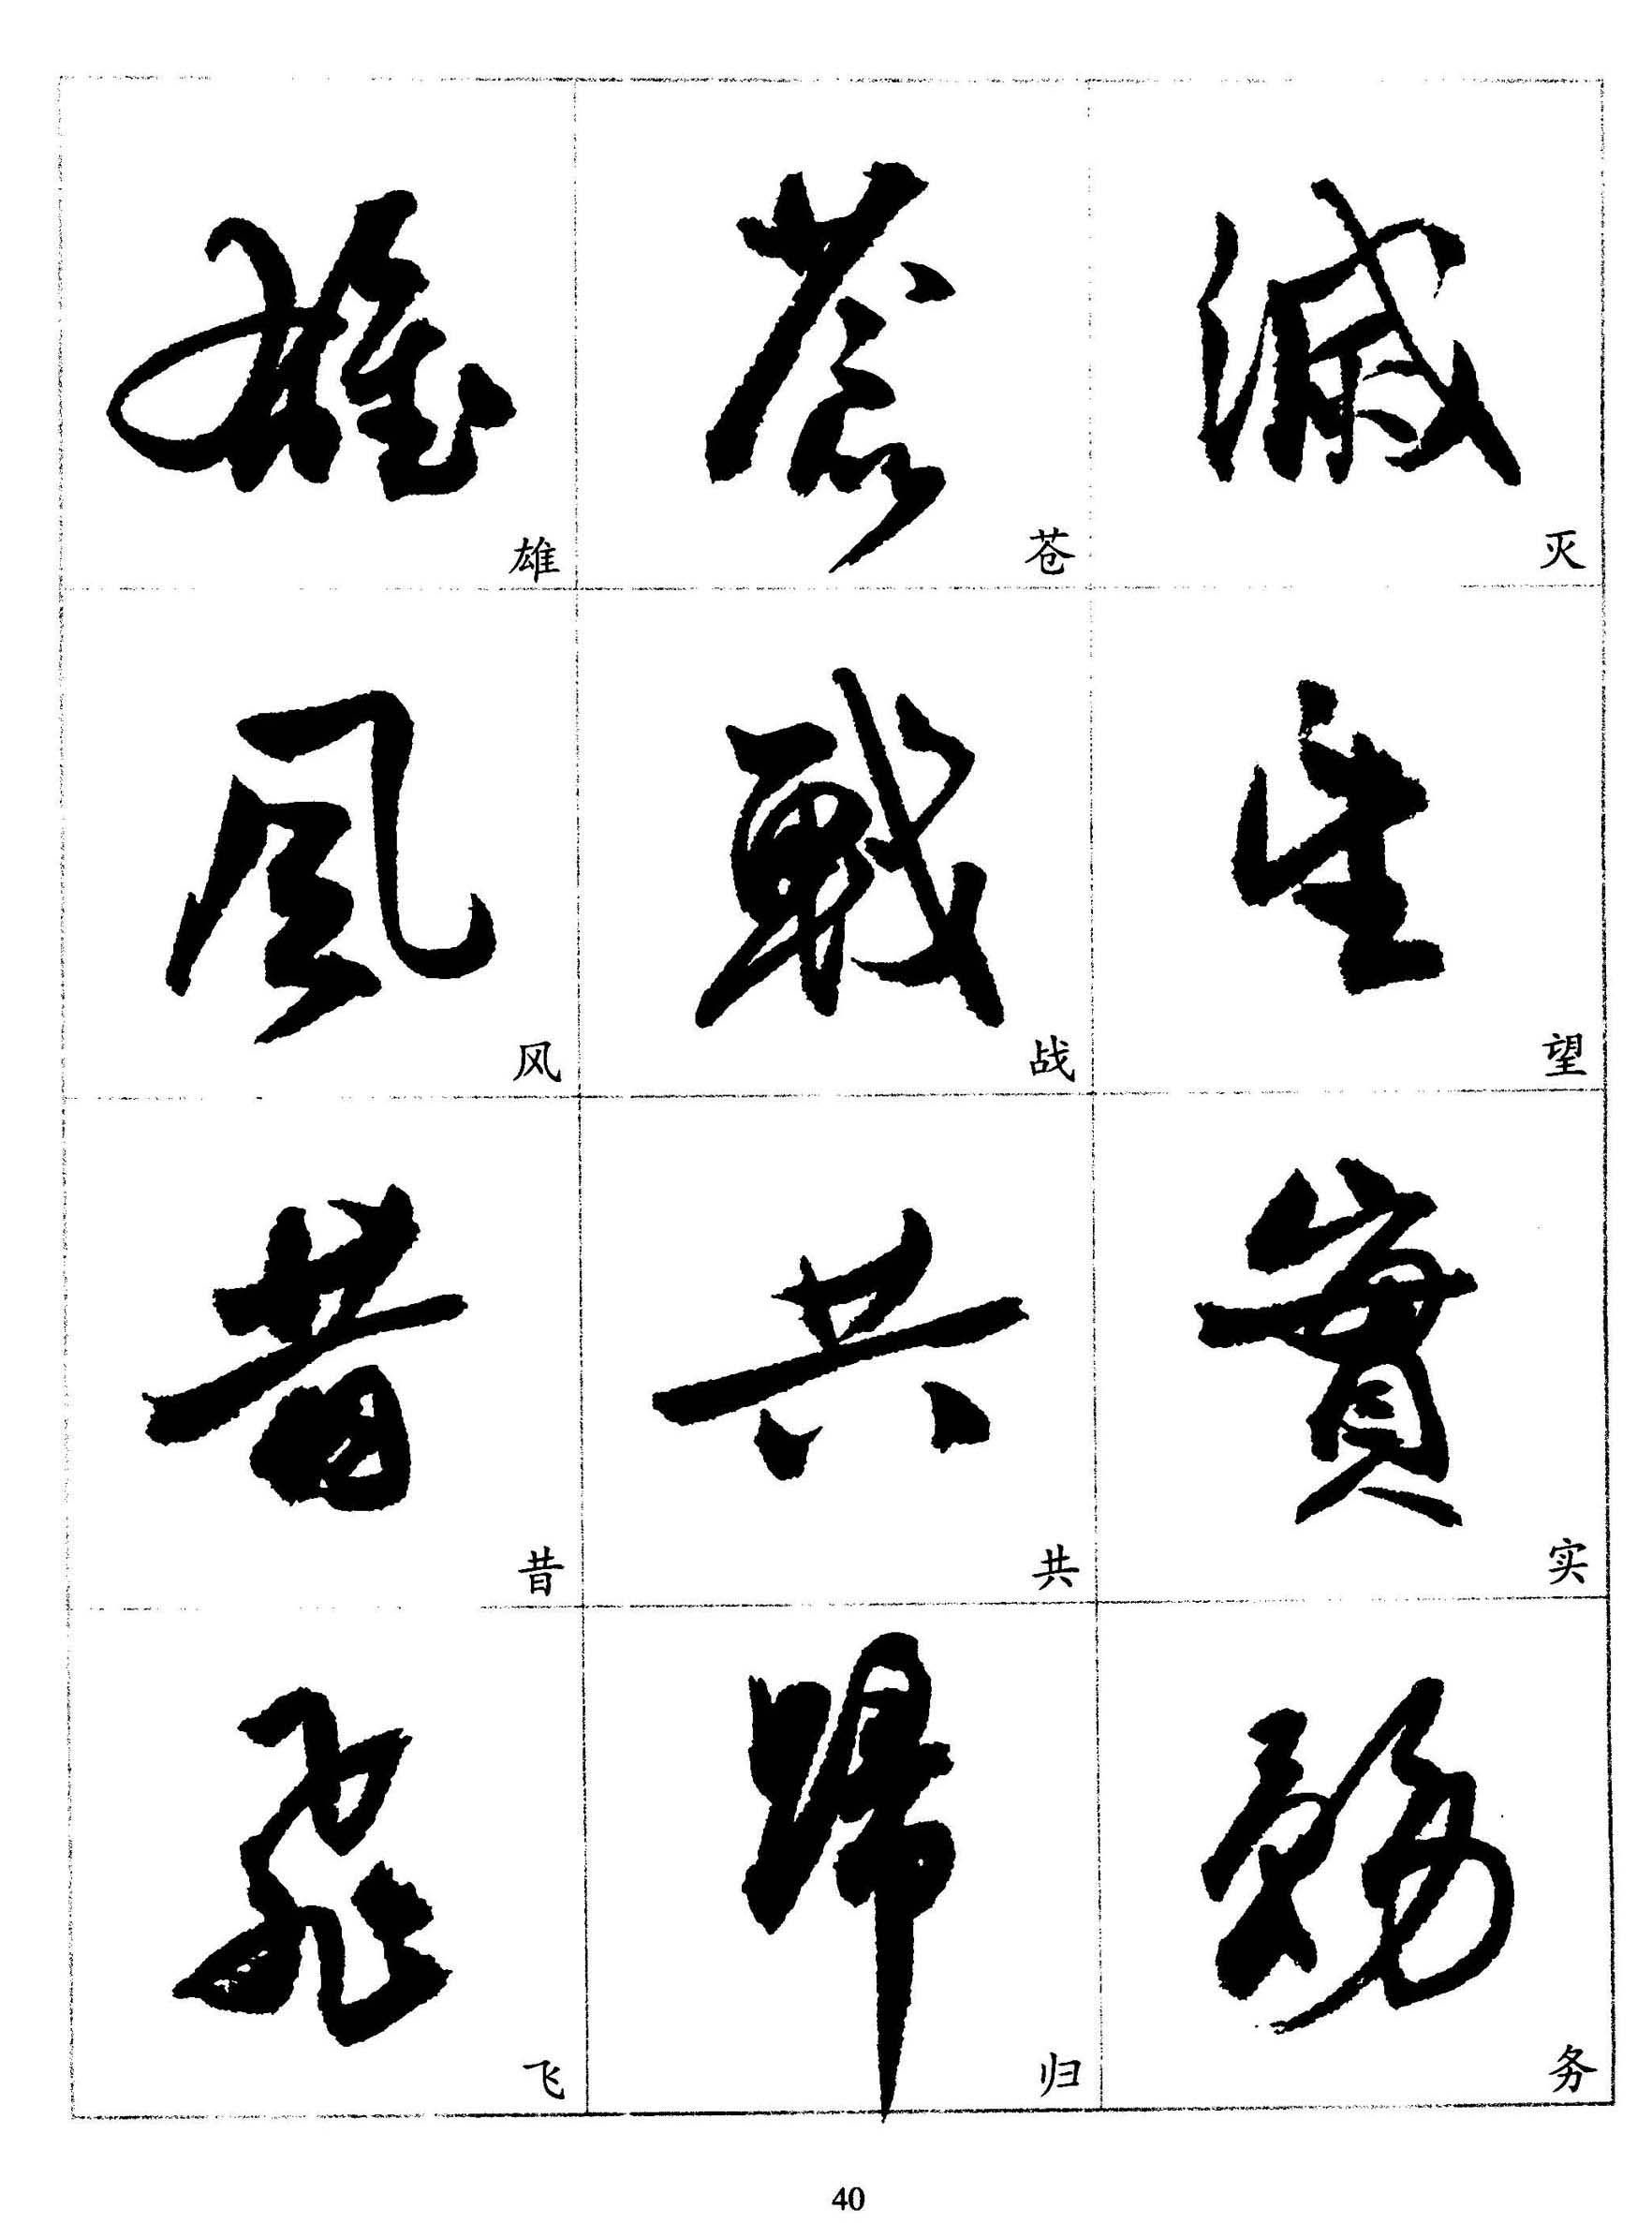 雄 苍 灭
風 戰 望
昔 共 實
飛 歸 務
雄 苍 灭
风 战 望
昔 共 实
飞 归 务
40